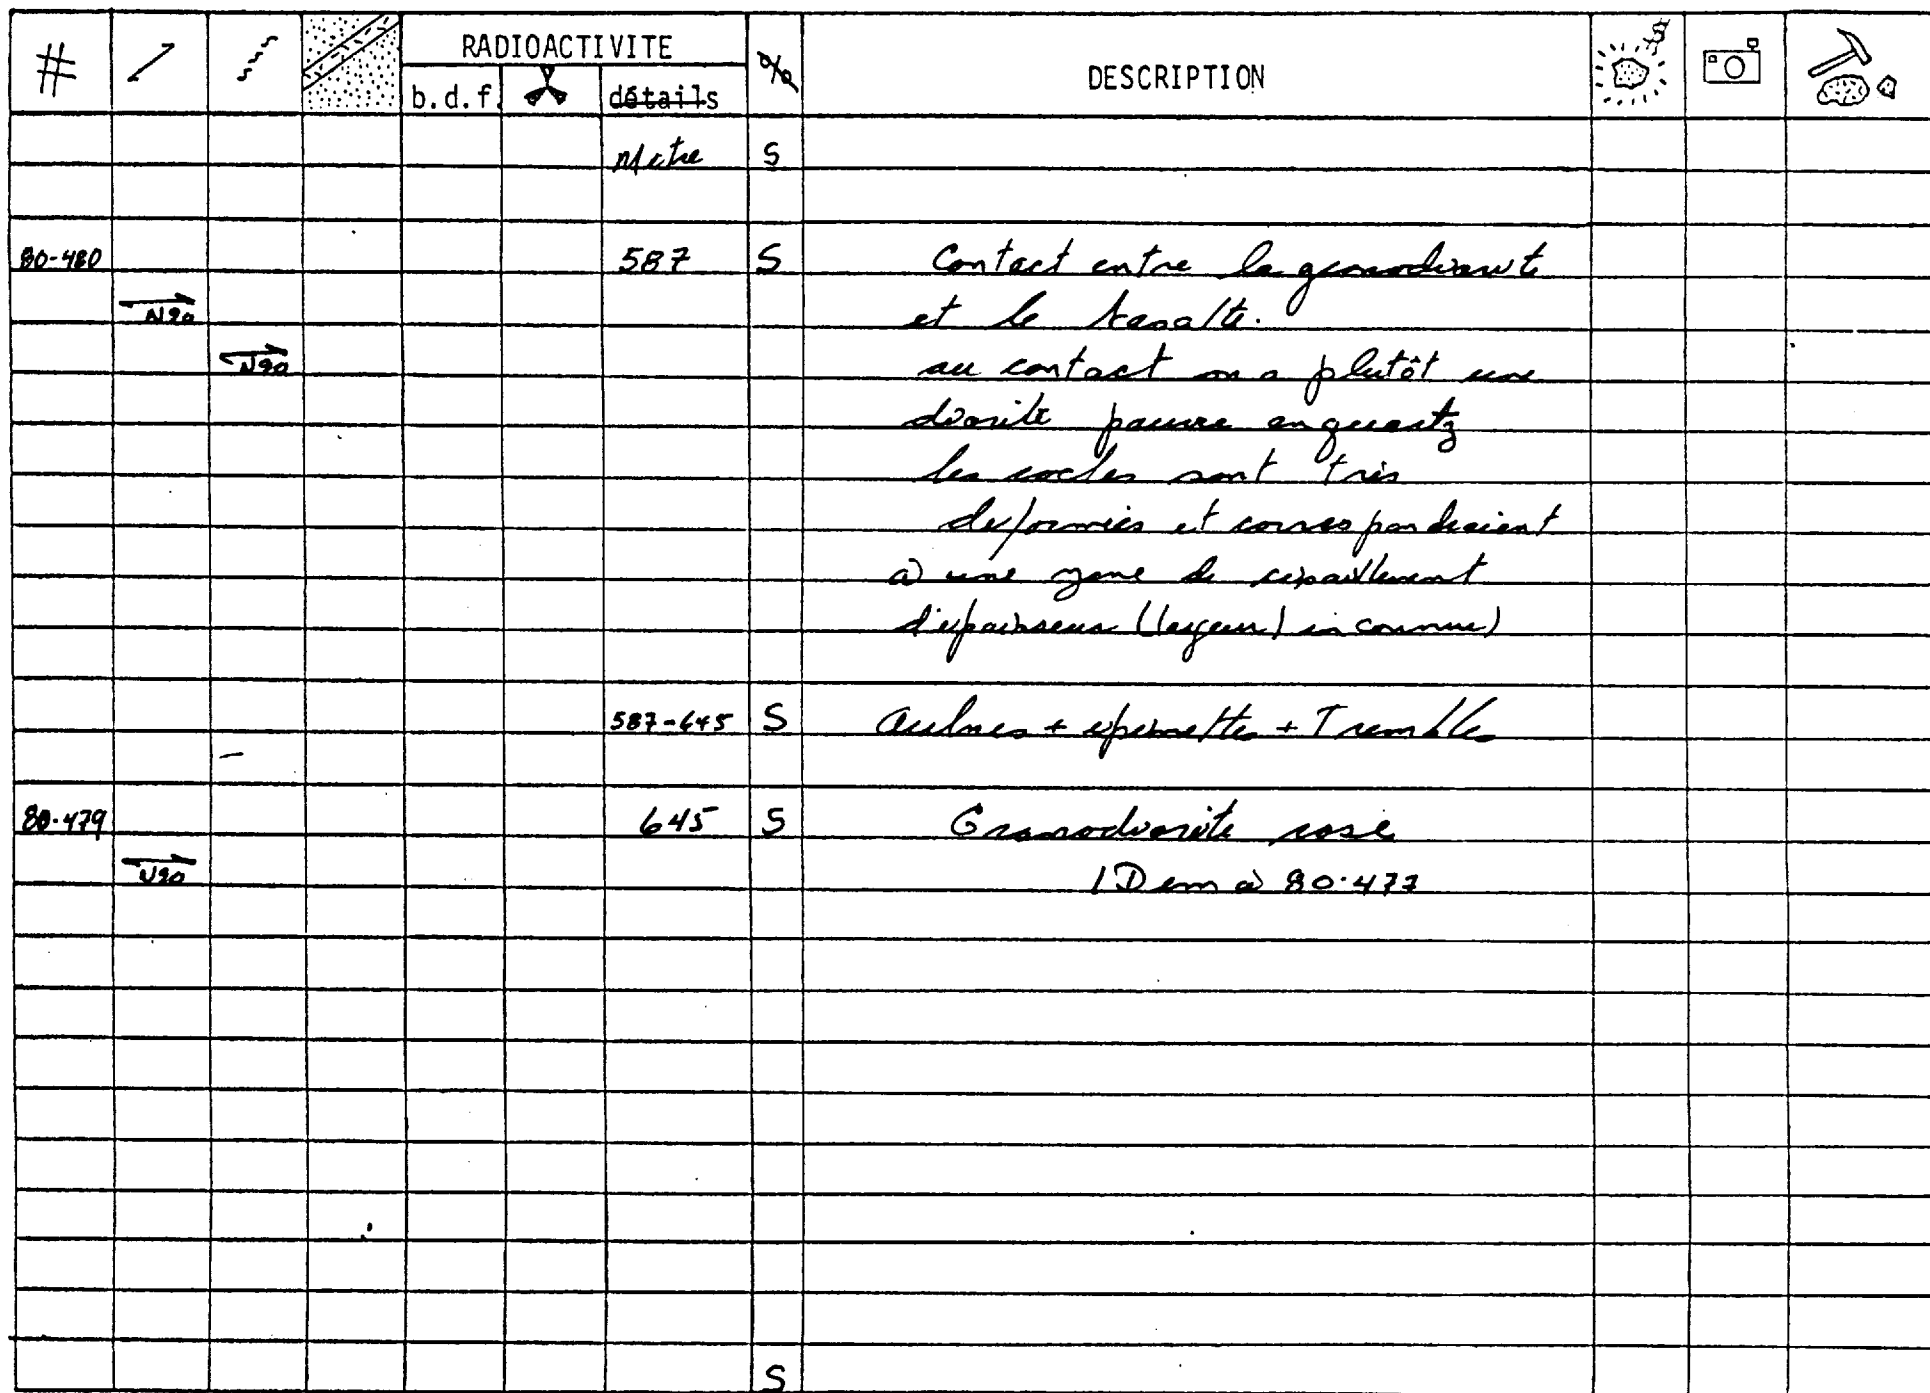 # RADIOACTIVITE % DESCRIPTION
b.d.f. détails
Metre S
80-480 587 S Contact entre la granodiorite
N90 et le basalte.
N90 au contact on a plutôt une
diorite pauvre en quartz
les roches sont très
deformés et correspondraient
à une zone de cisaillement
d'épaisseur (largeur) inconnue)
587-645 S Aulnes + epinettes + Trembles
80-479 645 S Granodiorite rose
N90 IDem à 80-477
S